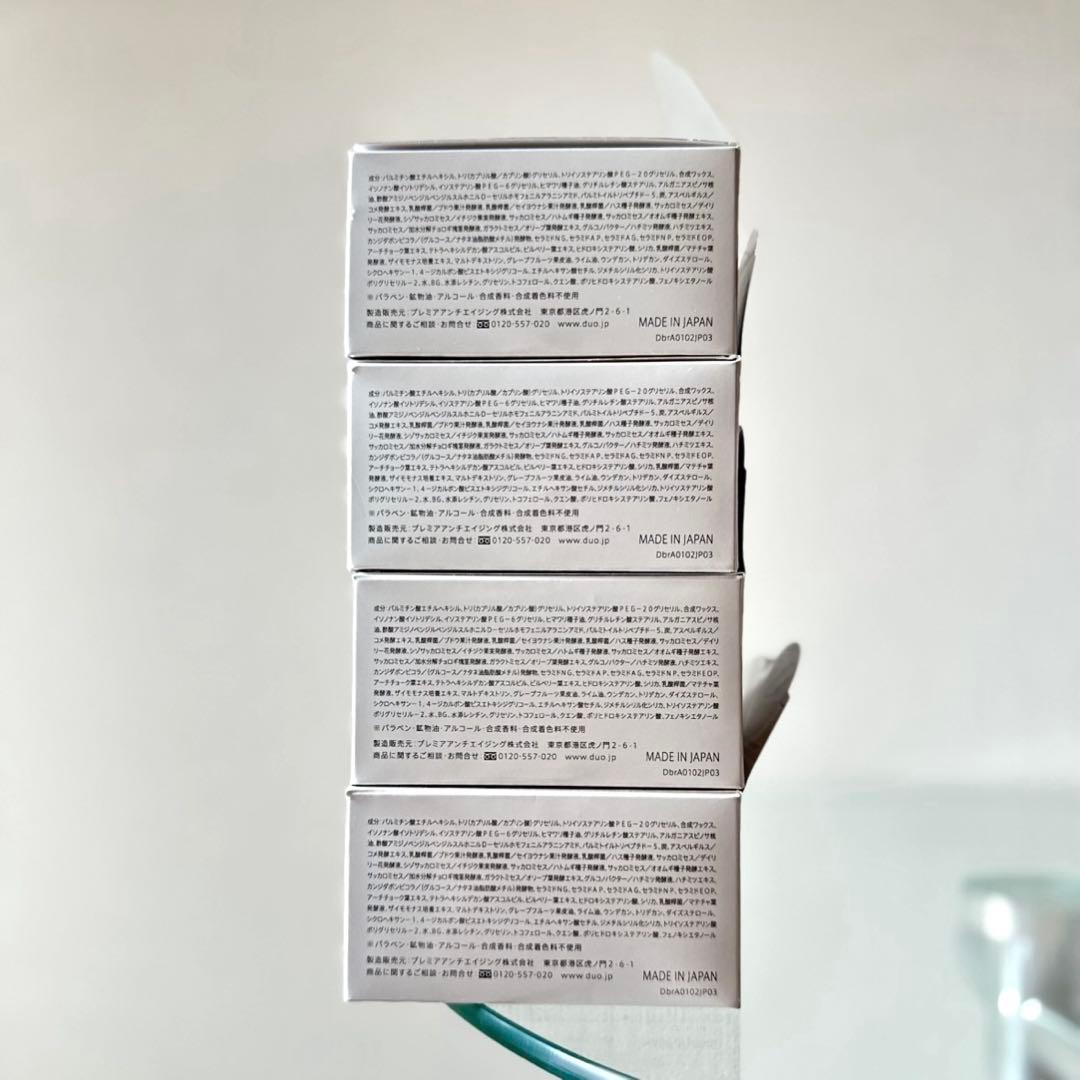 成分:パルミチン酸エチルヘキシル、トリ(カプリル酸/カプリン酸)グリセリル、トリイソステアリン酸PEG-20グリセリル、合成ワックス、
イソノナン酸イソトリデシル、イソステアリン酸PEG-6グリセリル、ヒマワリ種子油、グリチルレチン酸ステアリル、アルガニアスピノサ核
油、酢酸アミジノベンジルベンジルスルホニルD-セリルホモフェニルアラニンアミド、パルミトイルトリペプチド-5、炭、アスペルギルス/
コメ発酵エキス、乳酸桿菌/ブドウ果汁発酵液、乳酸桿菌/セイヨウナシ果汁発酵液、乳酸桿菌/ハス種子発酵液、サッカロミセス/デイリ
リー花発酵液、シゾサッカロミセス/イチジク果実発酵液、サッカロミセス/ハトムギ種子発酵液、サッカロミセス/オオムギ種子発酵エキス、
サッカロミセス/加水分解チョロギ塊茎発酵液、ガラクトミセス/オリーブ葉発酵エキス、グルコノバクター/ハチミツ発酵液、ハチミツエキス、
カンジダボンビコラ/(グルコース/ナタネ油脂肪酸メチル)発酵物、セラミドNG、セラミドAP、セラミドAG、セラミドNP、セラミドEOP、
アーチチョーク葉エキス、テトラヘキシルデカン酸アスコルビル、ビルベリー葉エキス、ヒドロキシステアリン酸、シリカ、乳酸桿菌/マテチャ葉
発酵液、ザイモモナス培養エキス、マルトデキストリン、グレープフルーツ果皮油、ライム油、ウンデカン、トリデカン、ダイズステロール、
シクロヘキサン-1,4-ジカルボン酸ビスエトキシジグリコール、エチルヘキサン酸セチル、ジメチルシリル化シリカ、トリイソステアリン酸
ポリグリセリル-2、水、BG、水添レシチン、グリセリン、トコフェロール、クエン酸、ポリヒドロキシステアリン酸、フェノキシエタノール
※パラベン・鉱物油・アルコール・合成香料・合成着色料不使用
製造販売元:プレミアアンチエイジング株式会社 東京都港区虎ノ門2-6-1
商品に関するご相談・お問合せ:0120-557-020 www.duo.jp MADE IN JAPAN
DbrA0102JP03
成分:パルミチン酸エチルヘキシル、トリ(カプリル酸/カプリン酸)グリセリル、トリイソステアリン酸PEG-20グリセリル、合成ワックス、
イソノナン酸イソトリデシル、イソステアリン酸PEG-6グリセリル、ヒマワリ種子油、グリチルレチン酸ステアリル、アルガニアスピノサ核
油、酢酸アミジノベンジルベンジルスルホニルD-セリルホモフェニルアラニンアミド、パルミトイルトリペプチド-5、炭、アスペルギルス/
コメ発酵エキス、乳酸桿菌/ブドウ果汁発酵液、乳酸桿菌/セイヨウナシ果汁発酵液、乳酸桿菌/ハス種子発酵液、サッカロミセス/デイリ
リー花発酵液、シゾサッカロミセス/イチジク果実発酵液、サッカロミセス/ハトムギ種子発酵液、サッカロミセス/オオムギ種子発酵エキス、
サッカロミセス/加水分解チョロギ塊茎発酵液、ガラクトミセス/オリーブ葉発酵エキス、グルコノバクター/ハチミツ発酵液、ハチミツエキス、
カンジダボンビコラ/(グルコース/ナタネ油脂肪酸メチル)発酵物、セラミドNG、セラミドAP、セラミドAG、セラミドNP、セラミドEOP、
アーチチョーク葉エキス、テトラヘキシルデカン酸アスコルビル、ビルベリー葉エキス、ヒドロキシステアリン酸、シリカ、乳酸桿菌/マテチャ葉
発酵液、ザイモモナス培養エキス、マルトデキストリン、グレープフルーツ果皮油、ライム油、ウンデカン、トリデカン、ダイズステロール、
シクロヘキサン-1,4-ジカルボン酸ビスエトキシジグリコール、エチルヘキサン酸セチル、ジメチルシリル化シリカ、トリイソステアリン酸
ポリグリセリル-2、水、BG、水添レシチン、グリセリン、トコフェロール、クエン酸、ポリヒドロキシステアリン酸、フェノキシエタノール
※パラベン・鉱物油・アルコール・合成香料・合成着色料不使用
製造販売元:プレミアアンチエイジング株式会社 東京都港区虎ノ門2-6-1
商品に関するご相談・お問合せ:0120-557-020 www.duo.jp MADE IN JAPAN
DbrA0102JP03
成分:パルミチン酸エチルヘキシル、トリ(カプリル酸/カプリン酸)グリセリル、トリイソステアリン酸PEG-20グリセリル、合成ワックス、
イソノナン酸イソトリデシル、イソステアリン酸PEG-6グリセリル、ヒマワリ種子油、グリチルレチン酸ステアリル、アルガニアスピノサ核
油、酢酸アミジノベンジルベンジルスルホニルD-セリルホモフェニルアラニンアミド、パルミトイルトリペプチド-5、炭、アスペルギルス/
コメ発酵エキス、乳酸桿菌/ブドウ果汁発酵液、乳酸桿菌/セイヨウナシ果汁発酵液、乳酸桿菌/ハス種子発酵液、サッカロミセス/デイリ
リー花発酵液、シゾサッカロミセス/イチジク果実発酵液、サッカロミセス/ハトムギ種子発酵液、サッカロミセス/オオムギ種子発酵エキス、
サッカロミセス/加水分解チョロギ塊茎発酵液、ガラクトミセス/オリーブ葉発酵エキス、グルコノバクター/ハチミツ発酵液、ハチミツエキス、
カンジダボンビコラ/(グルコース/ナタネ油脂肪酸メチル)発酵物、セラミドNG、セラミドAP、セラミドAG、セラミドNP、セラミドEOP、
アーチチョーク葉エキス、テトラヘキシルデカン酸アスコルビル、ビルベリー葉エキス、ヒドロキシステアリン酸、シリカ、乳酸桿菌/マテチャ葉
発酵液、ザイモモナス培養エキス、マルトデキストリン、グレープフルーツ果皮油、ライム油、ウンデカン、トリデカン、ダイズステロール、
シクロヘキサン-1,4-ジカルボン酸ビスエトキシジグリコール、エチルヘキサン酸セチル、ジメチルシリル化シリカ、トリイソステアリン酸
ポリグリセリル-2、水、BG、水添レシチン、グリセリン、トコフェロール、クエン酸、ポリヒドロキシステアリン酸、フェノキシエタノール
※パラベン・鉱物油・アルコール・合成香料・合成着色料不使用
製造販売元:プレミアアンチエイジング株式会社 東京都港区虎ノ門2-6-1
商品に関するご相談・お問合せ:0120-557-020 www.duo.jp MADE IN JAPAN
DbrA0102JP03
成分:パルミチン酸エチルヘキシル、トリ(カプリル酸/カプリン酸)グリセリル、トリイソステアリン酸PEG-20グリセリル、合成ワックス、
イソノナン酸イソトリデシル、イソステアリン酸PEG-6グリセリル、ヒマワリ種子油、グリチルレチン酸ステアリル、アルガニアスピノサ核
油、酢酸アミジノベンジルベンジルスルホニルD-セリルホモフェニルアラニンアミド、パルミトイルトリペプチド-5、炭、アスペルギルス/
コメ発酵エキス、乳酸桿菌/ブドウ果汁発酵液、乳酸桿菌/セイヨウナシ果汁発酵液、乳酸桿菌/ハス種子発酵液、サッカロミセス/デイリ
リー花発酵液、シゾサッカロミセス/イチジク果実発酵液、サッカロミセス/ハトムギ種子発酵液、サッカロミセス/オオムギ種子発酵エキス、
サッカロミセス/加水分解チョロギ塊茎発酵液、ガラクトミセス/オリーブ葉発酵エキス、グルコノバクター/ハチミツ発酵液、ハチミツエキス、
カンジダボンビコラ/(グルコース/ナタネ油脂肪酸メチル)発酵物、セラミドNG、セラミドAP、セラミドAG、セラミドNP、セラミドEOP、
アーチチョーク葉エキス、テトラヘキシルデカン酸アスコルビル、ビルベリー葉エキス、ヒドロキシステアリン酸、シリカ、乳酸桿菌/マテチャ葉
発酵液、ザイモモナス培養エキス、マルトデキストリン、グレープフルーツ果皮油、ライム油、ウンデカン、トリデカン、ダイズステロール、
シクロヘキサン-1,4-ジカルボン酸ビスエトキシジグリコール、エチルヘキサン酸セチル、ジメチルシリル化シリカ、トリイソステアリン酸
ポリグリセリル-2、水、BG、水添レシチン、グリセリン、トコフェロール、クエン酸、ポリヒドロキシステアリン酸、フェノキシエタノール
※パラベン・鉱物油・アルコール・合成香料・合成着色料不使用
製造販売元:プレミアアンチエイジング株式会社 東京都港区虎ノ門2-6-1
商品に関するご相談・お問合せ:0120-557-020 www.duo.jp MADE IN JAPAN
DbrA0102JP03